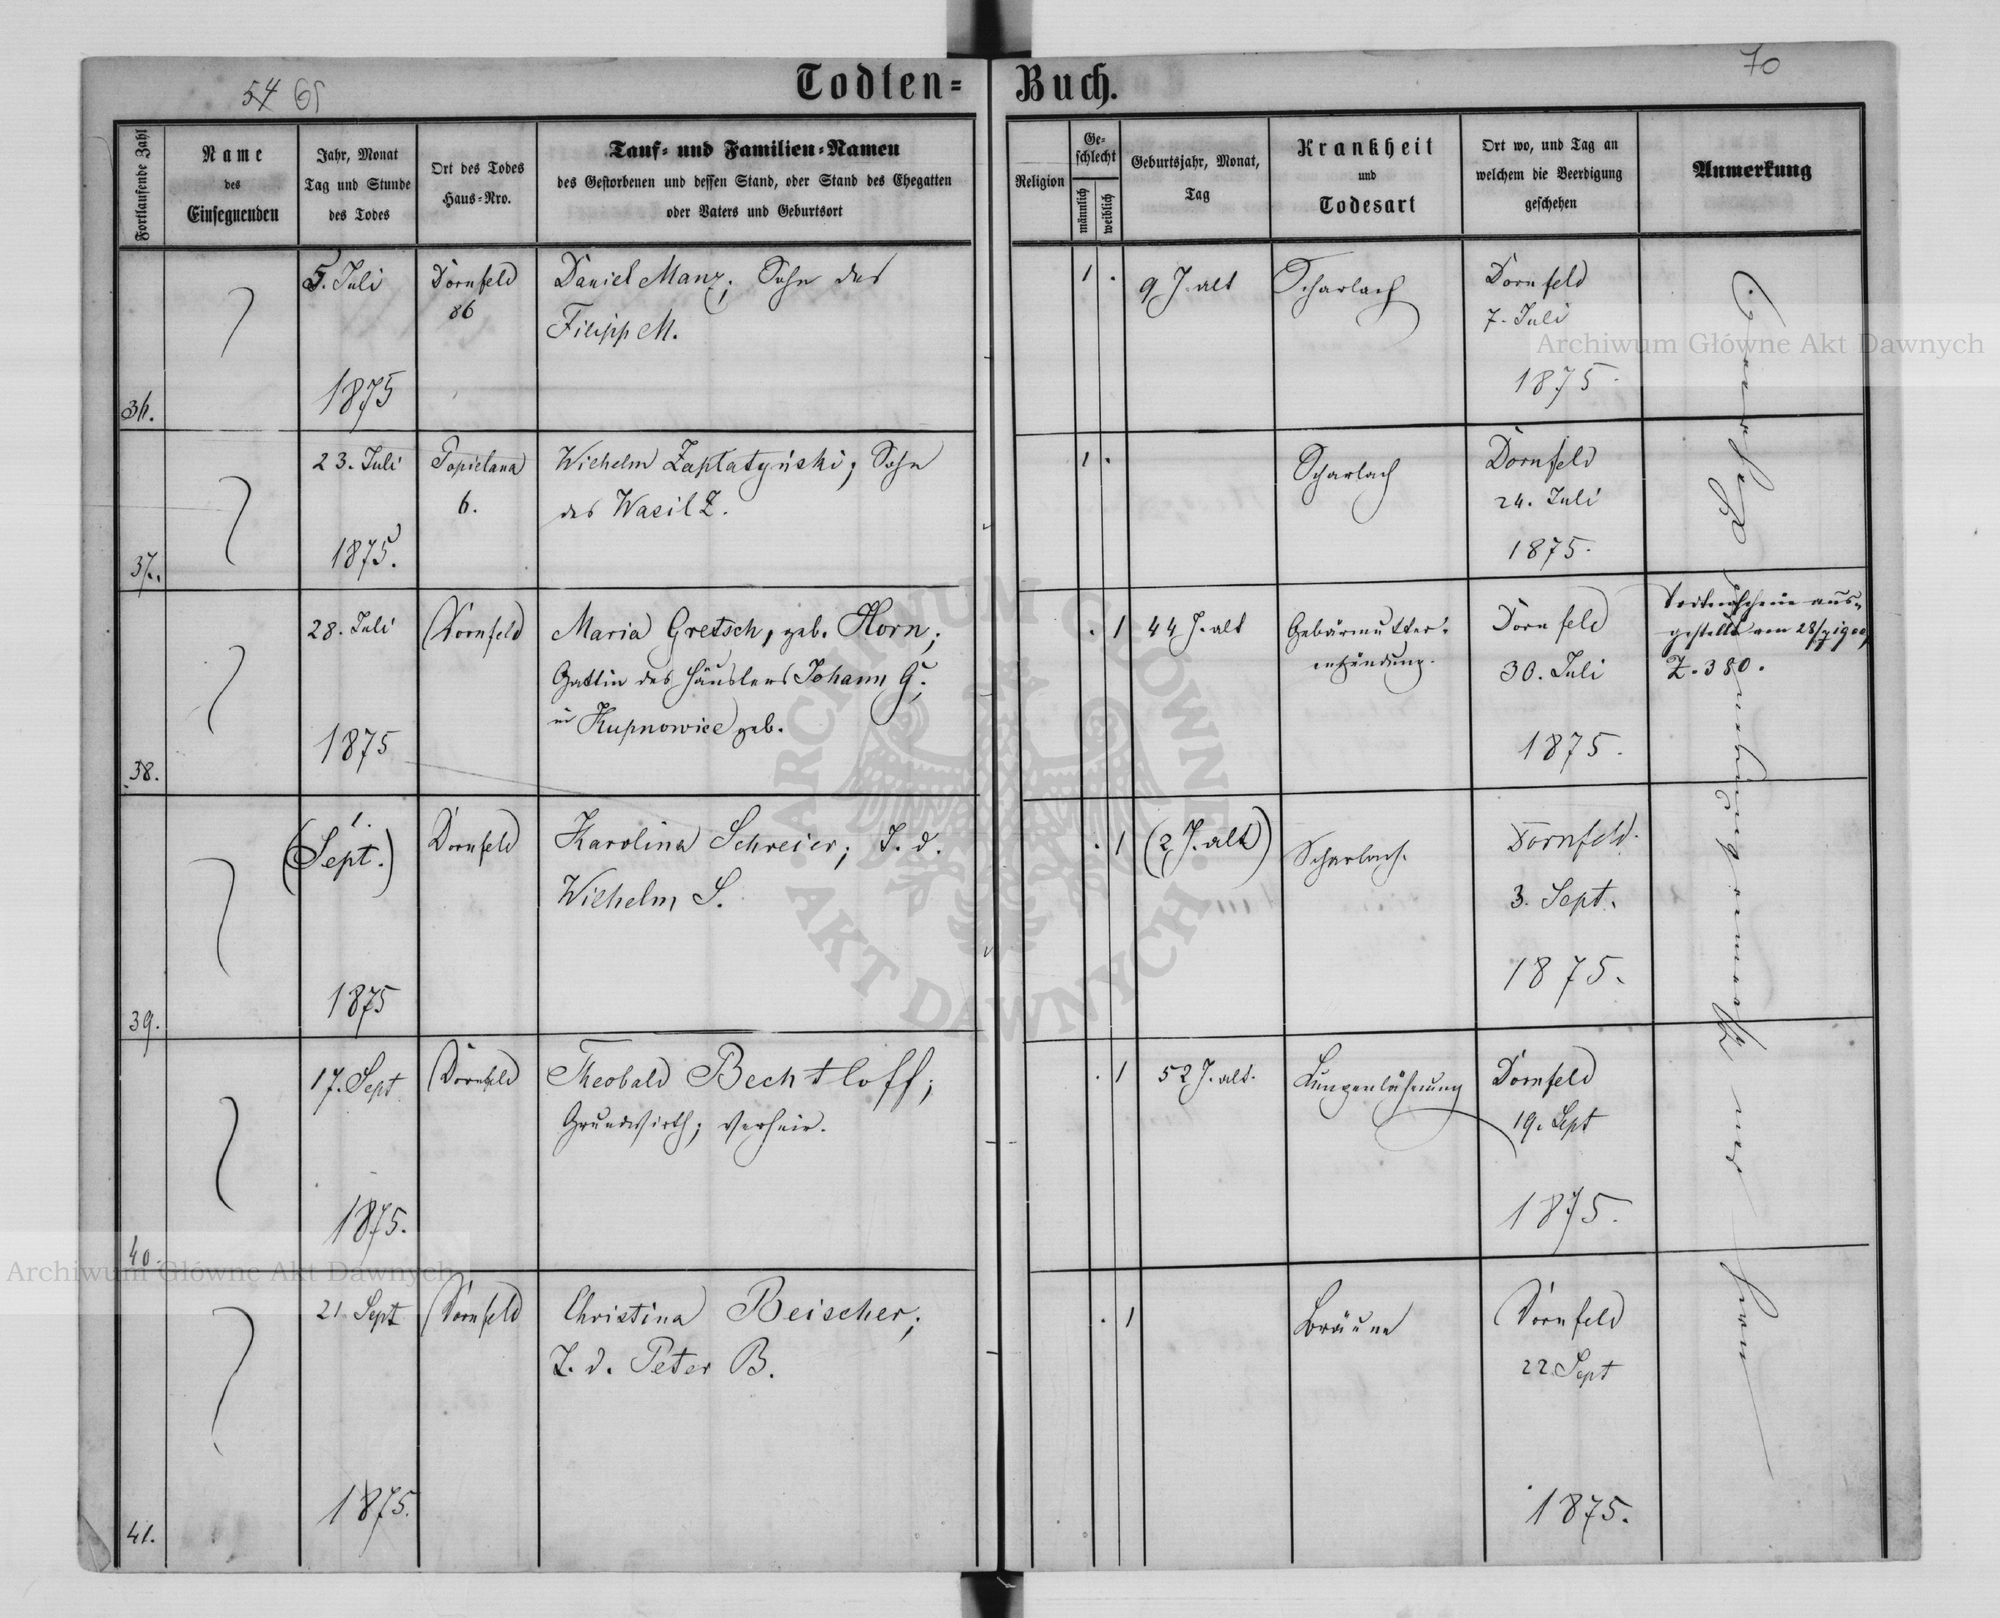 54 69
70
Todten=
Buch.
Fortlaufende Zahl
Name
des
Einsegnenden
Jahr, Monat
Tag und Stunde
des Todes
Ort des Todes
Haus=Nro.
Tauf= und Familien=Namen
des Gestorbenen und dessen Stand, oder Stand des Ehegatten
oder Vaters und Geburtsort
Religion
Ge=
schlecht
männlich
weiblich
Geburtsjahr, Monat,
Tag
Krankheit
und
Todesart
Ort wo, und Tag an
welchem die Beerdigung
geschehen
Anmerkung
36.
5. Juli
1875
Dornfeld
86
Daniel Manz; Sohn des
Filipp M.
1 .
9 J. alt
Scharlach
Dornfeld
7. Juli
1875.
37.
23. Juli
1875.
Popielana
6.
Wilhelm Zaplatyński; Sohn
des Wasil Z.
1 .
Scharlach
Dornfeld
24. Juli
1875.
38.
28. Juli
1875
Dornfeld
Maria Gretsch, geb. Horn;
Gattin des Häuslers Johann G.;
in Kupnowice geb.
. 1
44 J. alt
Gebärmutter=
entzündung.
Dornfeld
30. Juli
1875.
Todtenschein aus=
gestellt am 28/7 1900,
Z. 380.
39.
1.
(Sept.)
1875
Dornfeld
Karolina Schreier; T. d.
Wilhelm S.
. 1
(2 J. alt)
Scharlach.
Dornfeld.
3. Sept.
1875.
40.
17. Sept
1875.
Dornfeld
Theobald Bechtloff;
Grundwirth; verheir.
. 1
52 J. alt.
Lungenlähmung
Dornfeld
19. Sept
1875.
41.
21. Sept
1875.
Dornfeld
Christina Beischer;
T. d. Peter B.
. 1
Bräune
Dornfeld
22 Sept
1875.
Archiwum Główne Akt Dawnych
Archiwum Główne Akt Dawnych
ARCHIWUM GŁÓWNE
AKT DAWNYCH